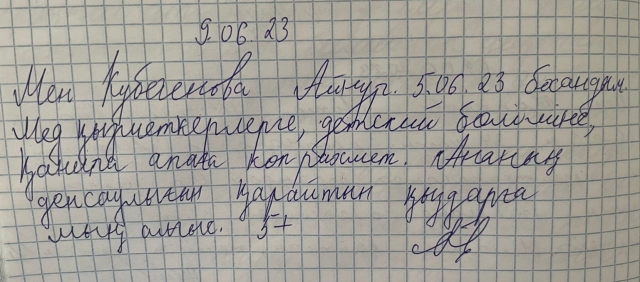 9.06.23
Мен Кубегенова Айнур. 5.06.23 босандым.
Мед қызметкерлерге, детский бөлімшеге,
апаға көп рахмет. Ананың
денсаулығын қарайтын қыздарға
мың алғыс. 5+